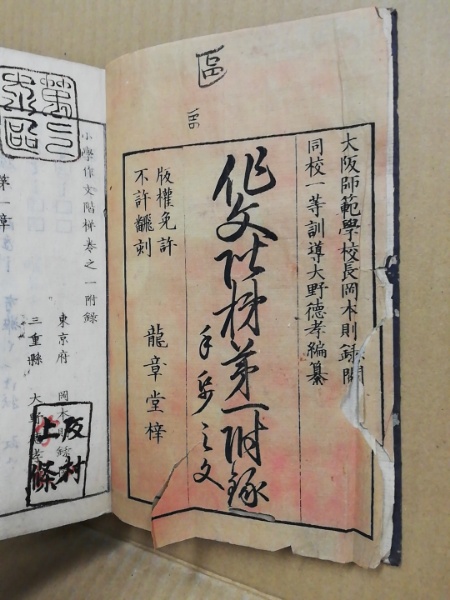 區
大阪師範學校長岡本則録閲
同校一等訓導大野德孝編纂
作文階梯第一附録
之文
版權免許
不許飜刻
龍章堂梓
小學作文階梯卷之一附録
東京府 岡本則
三重縣 大野
第一章